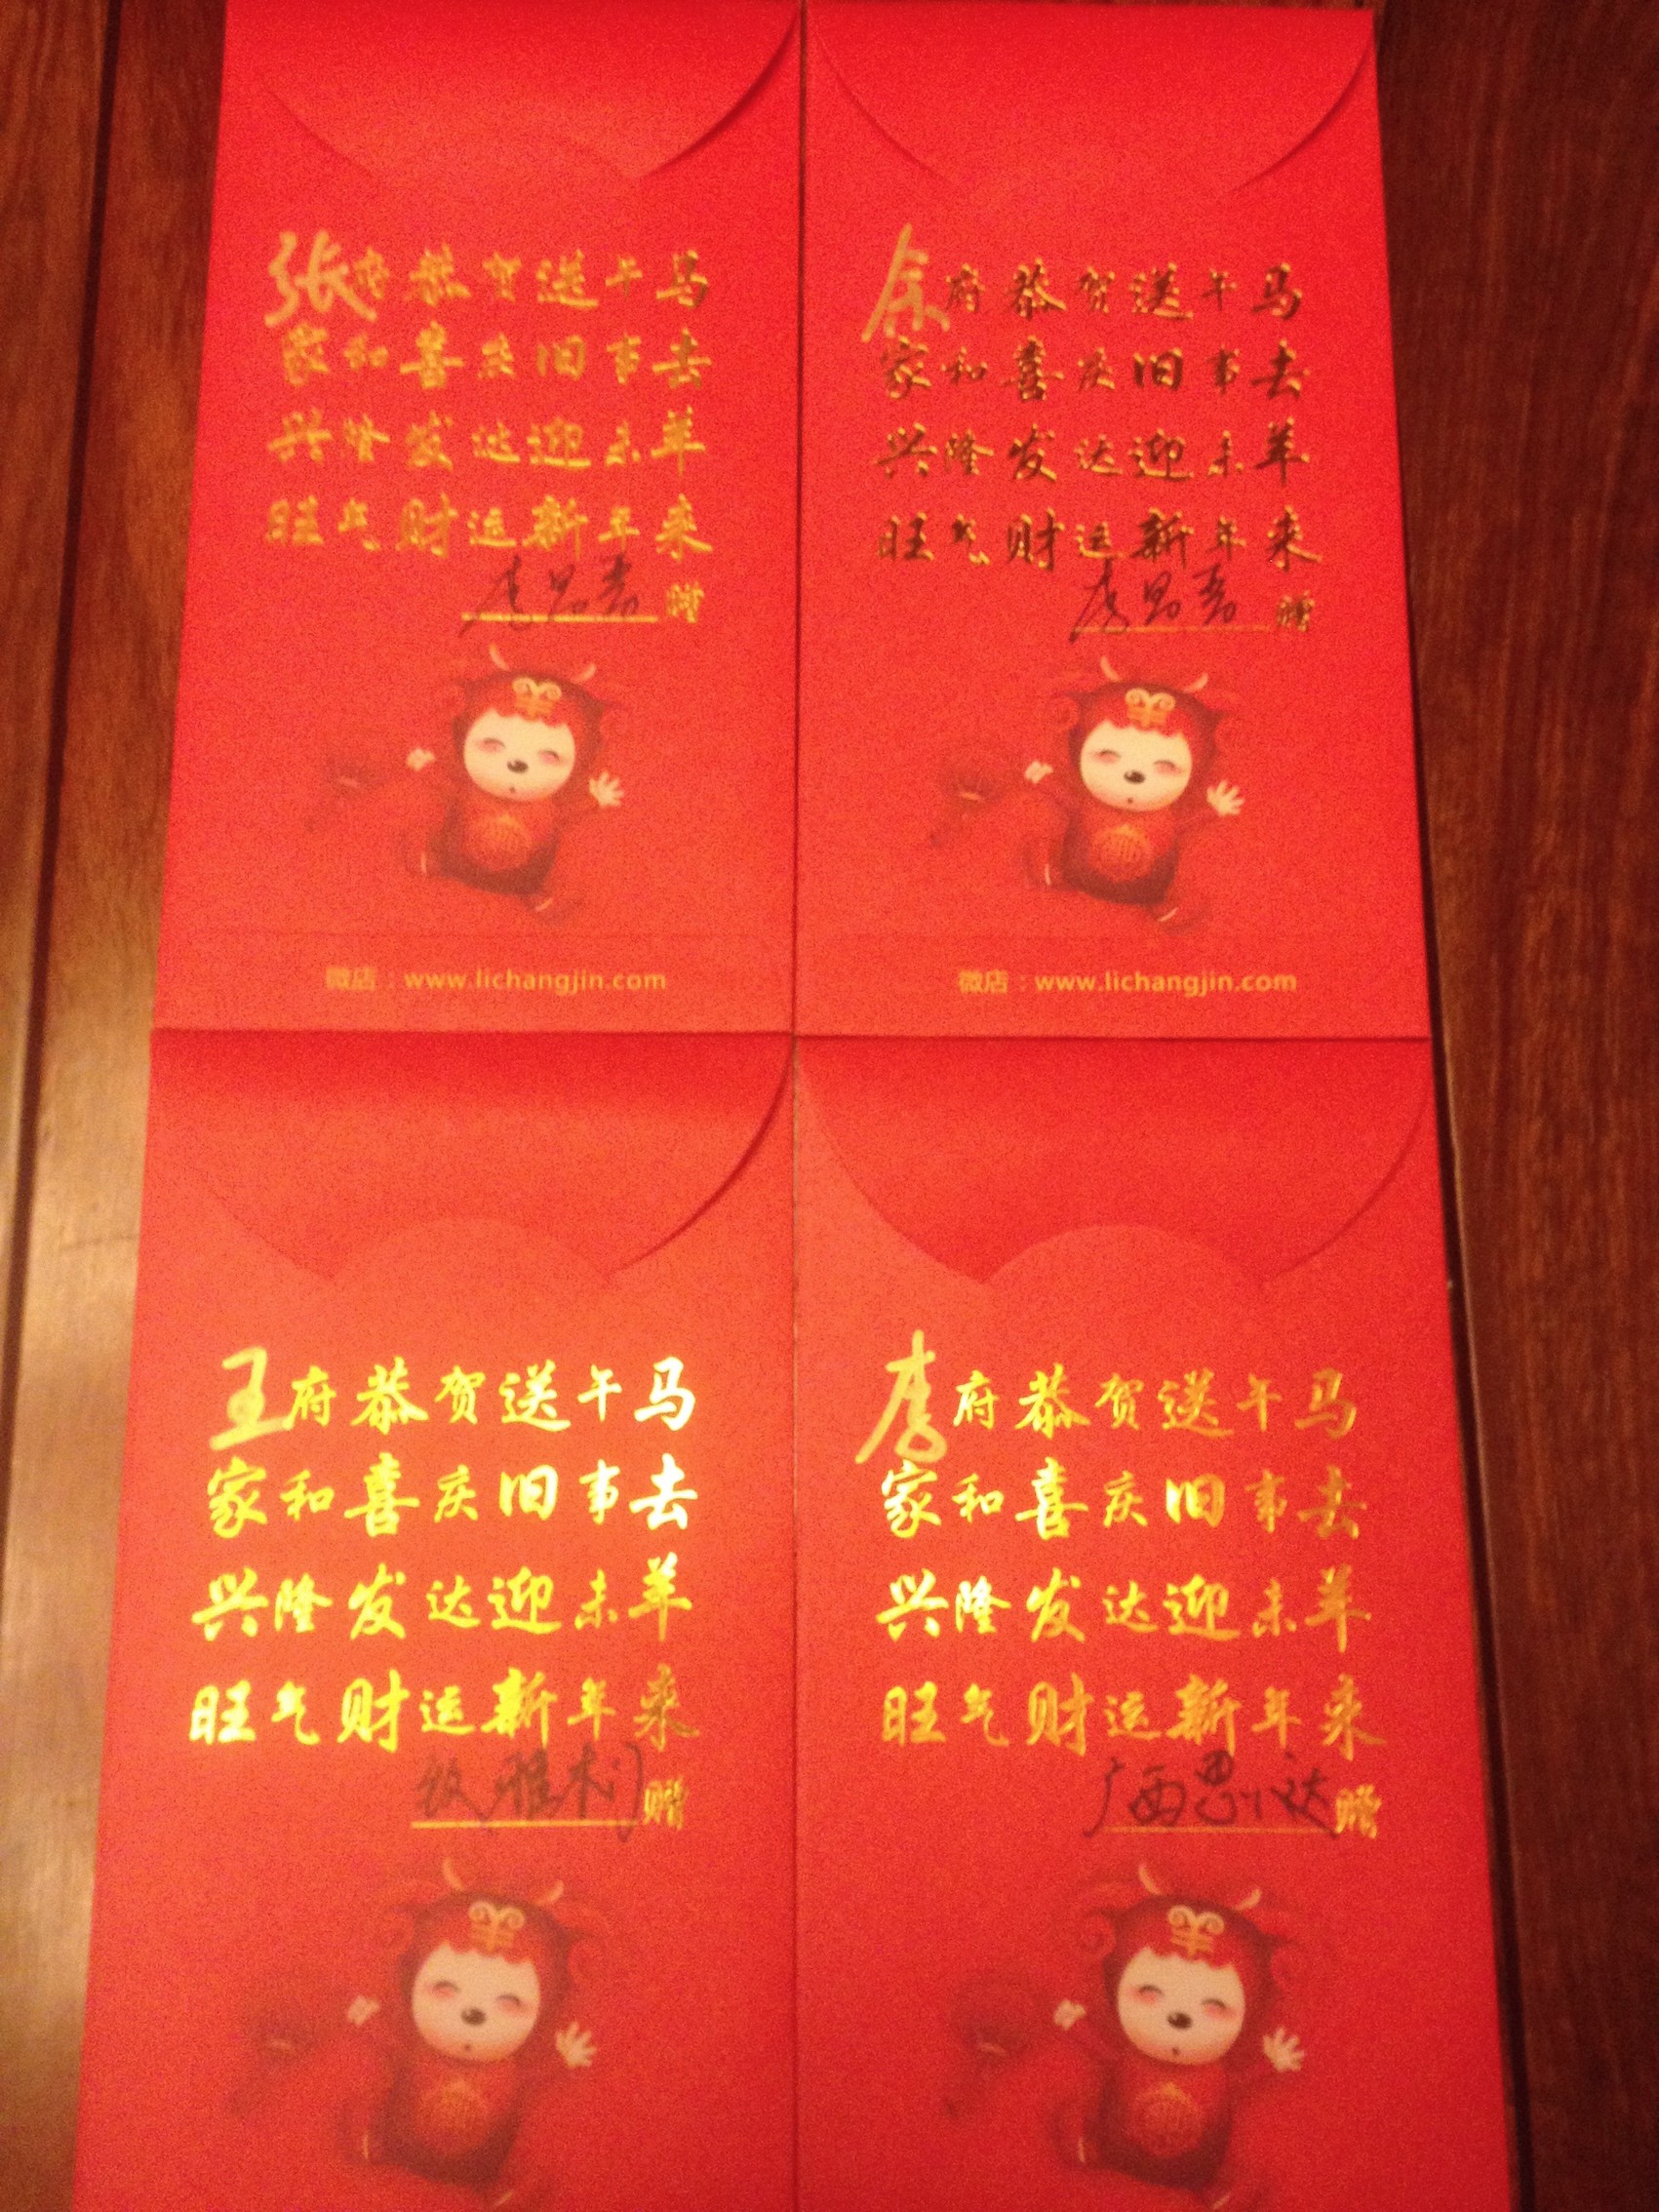 张府恭贺送午马
家和喜庆旧事去
兴隆发达迎未羊
旺气财运新年来
李思嘉 赠
微店：www.lichangjin.com
余府恭贺送午马
家和喜庆旧事去
兴隆发达迎未羊
旺气财运新年来
李思嘉 赠
微店：www.lichangjin.com
王府恭贺送午马
家和喜庆旧事去
兴隆发达迎未羊
旺气财运新年来
赠
李府恭贺送午马
家和喜庆旧事去
兴隆发达迎未羊
旺气财运新年来
广西思小达 赠